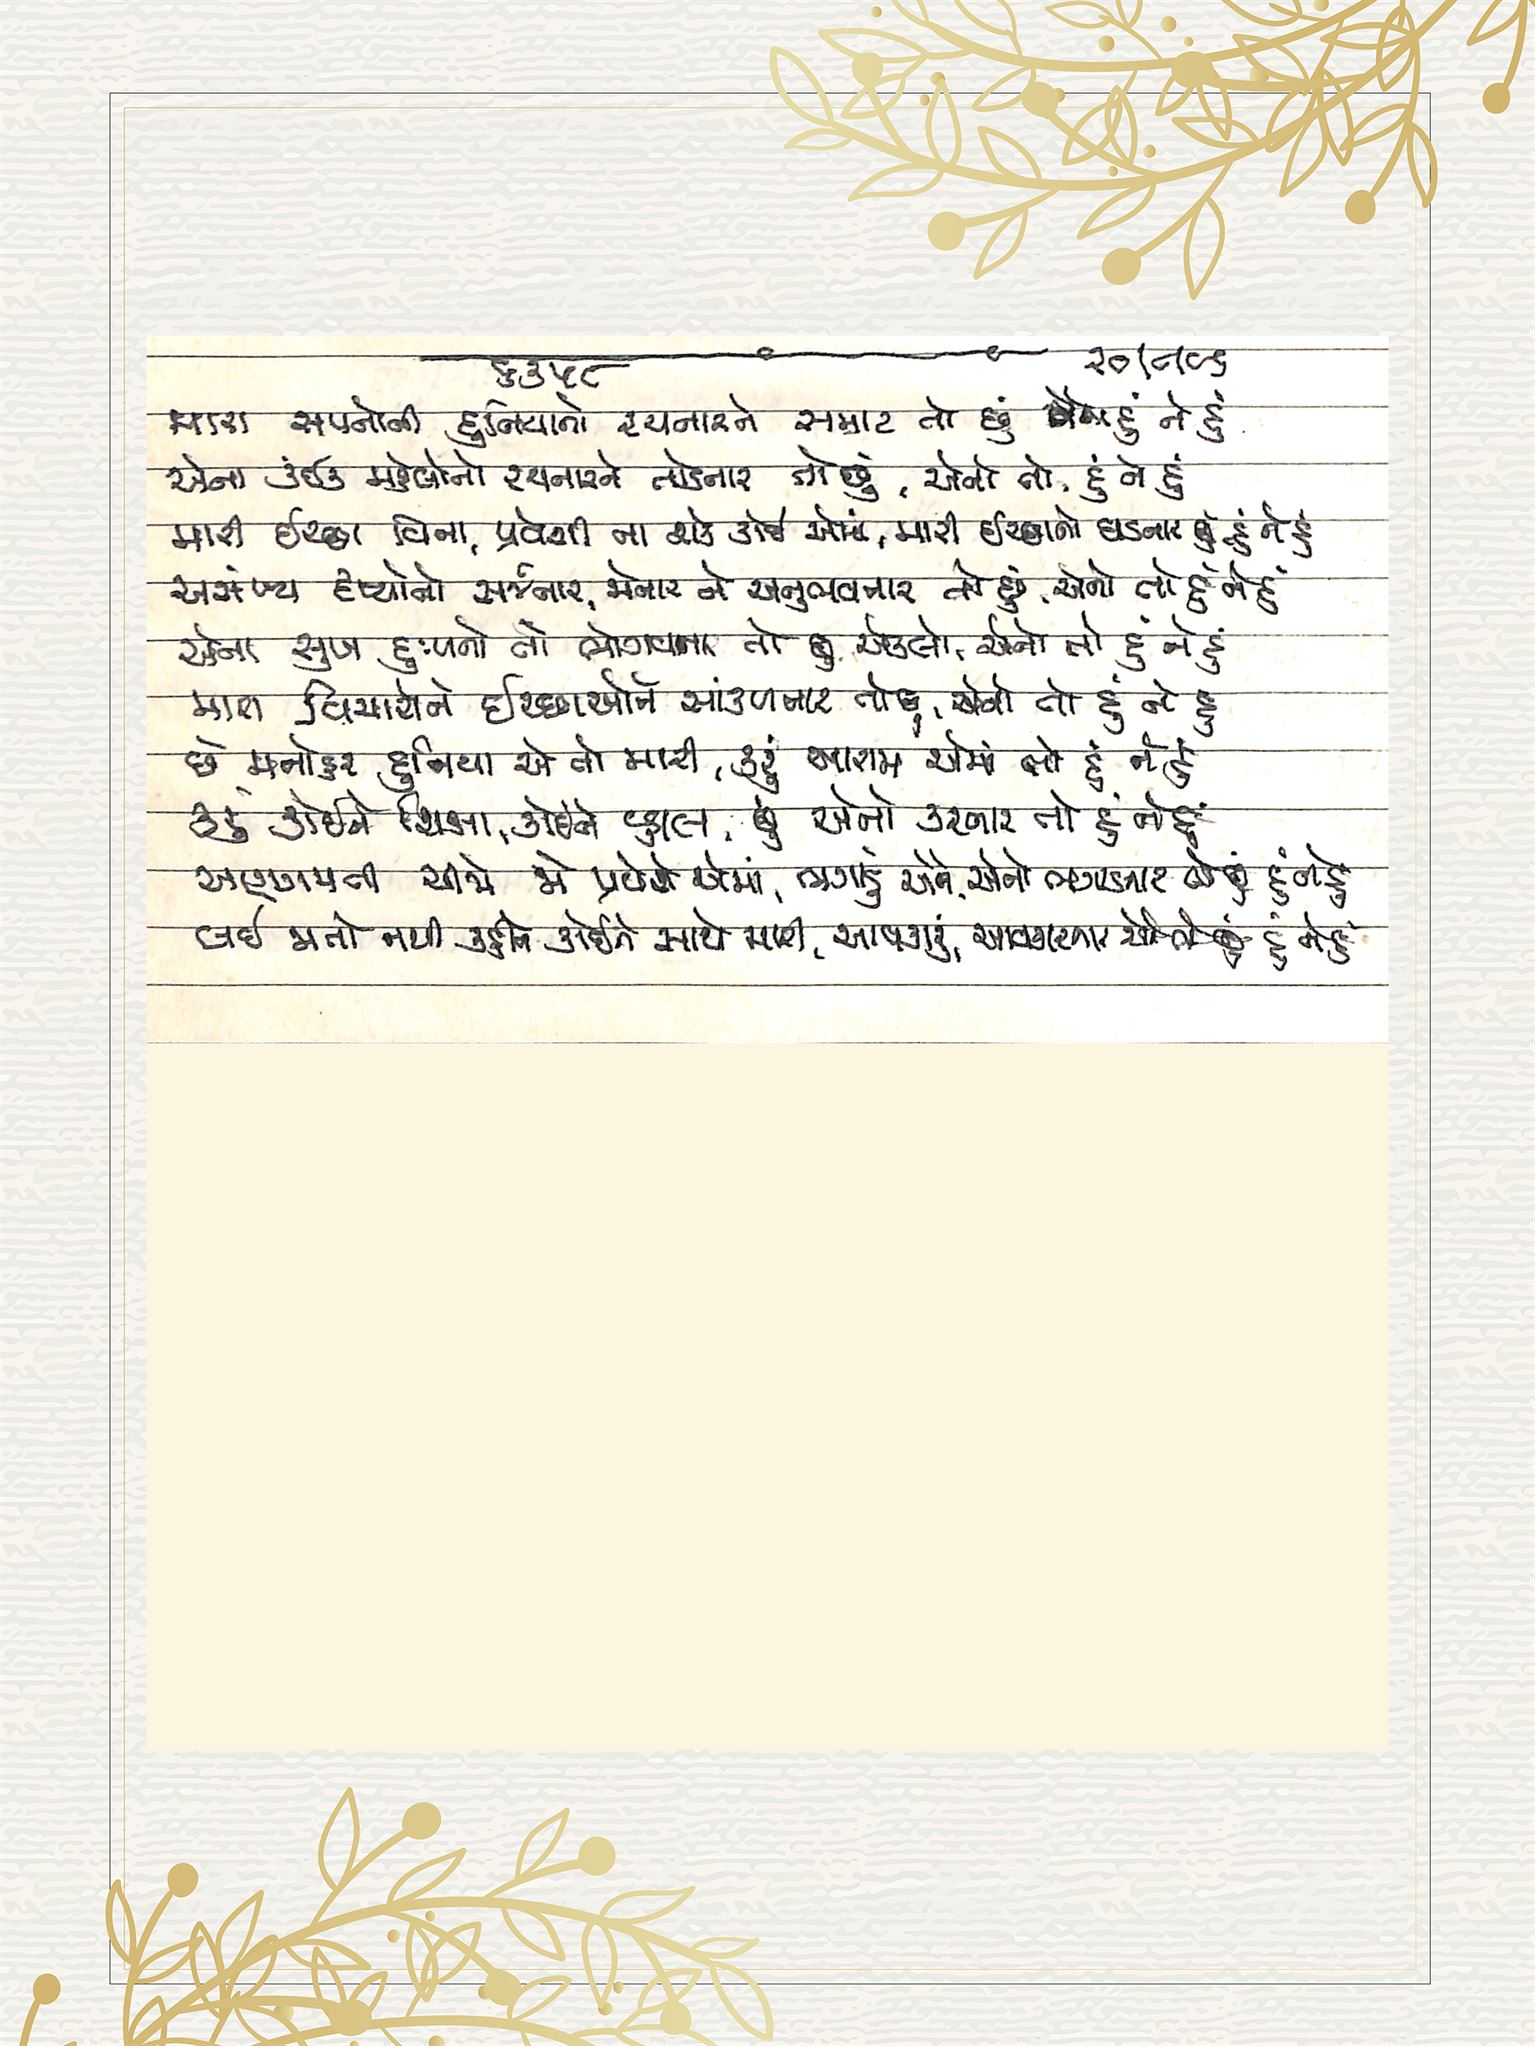 ૬૩૫૮ ૨૦/૮/૯૬
મારા સપનોની દુનિયાનો રચનારને સમ્રાટ તો છું હું ને હું
એના કંઈક મહેલોનો રચનારને તોડનાર તો છું, એનો તો, હું ને હું
મારી ઈચ્છા વિના, પ્રવેશી ના શકે કોઈ એમાં, મારી ઈચ્છાનો ઘડનાર છું હું ને હું
અસંખ્ય દૃષ્યોનો સર્જનાર, જોનાર ને અનુભવનાર તો છું, એનો તો હું ને હું
એના સુખ દુઃખનો તો ભોગવનાર તો છું એકલો, એનો તો હું ને હું
મારા વિચારોને ઈચ્છાઓને સાંકળનાર તો છું, એનો તો હું ને હું
છે મનોહર દુનિયા એ તો મારી, કરું આરામ એમાં તો હું ને હું
કરું કોઈને શિક્ષા, કોઈને વ્હાલ, છું એનો કરનાર તો હું ને હું
અણગમની ચીજો જો પ્રવેશે એમાં, ભગાડું એને, એનો ભગાડનાર તો છું હું ને હું
લઈ જાતો નથી કહીને કોઈને સાથે મારી, આવકારું, આવકારનાર એનો તો છું હું ને હું